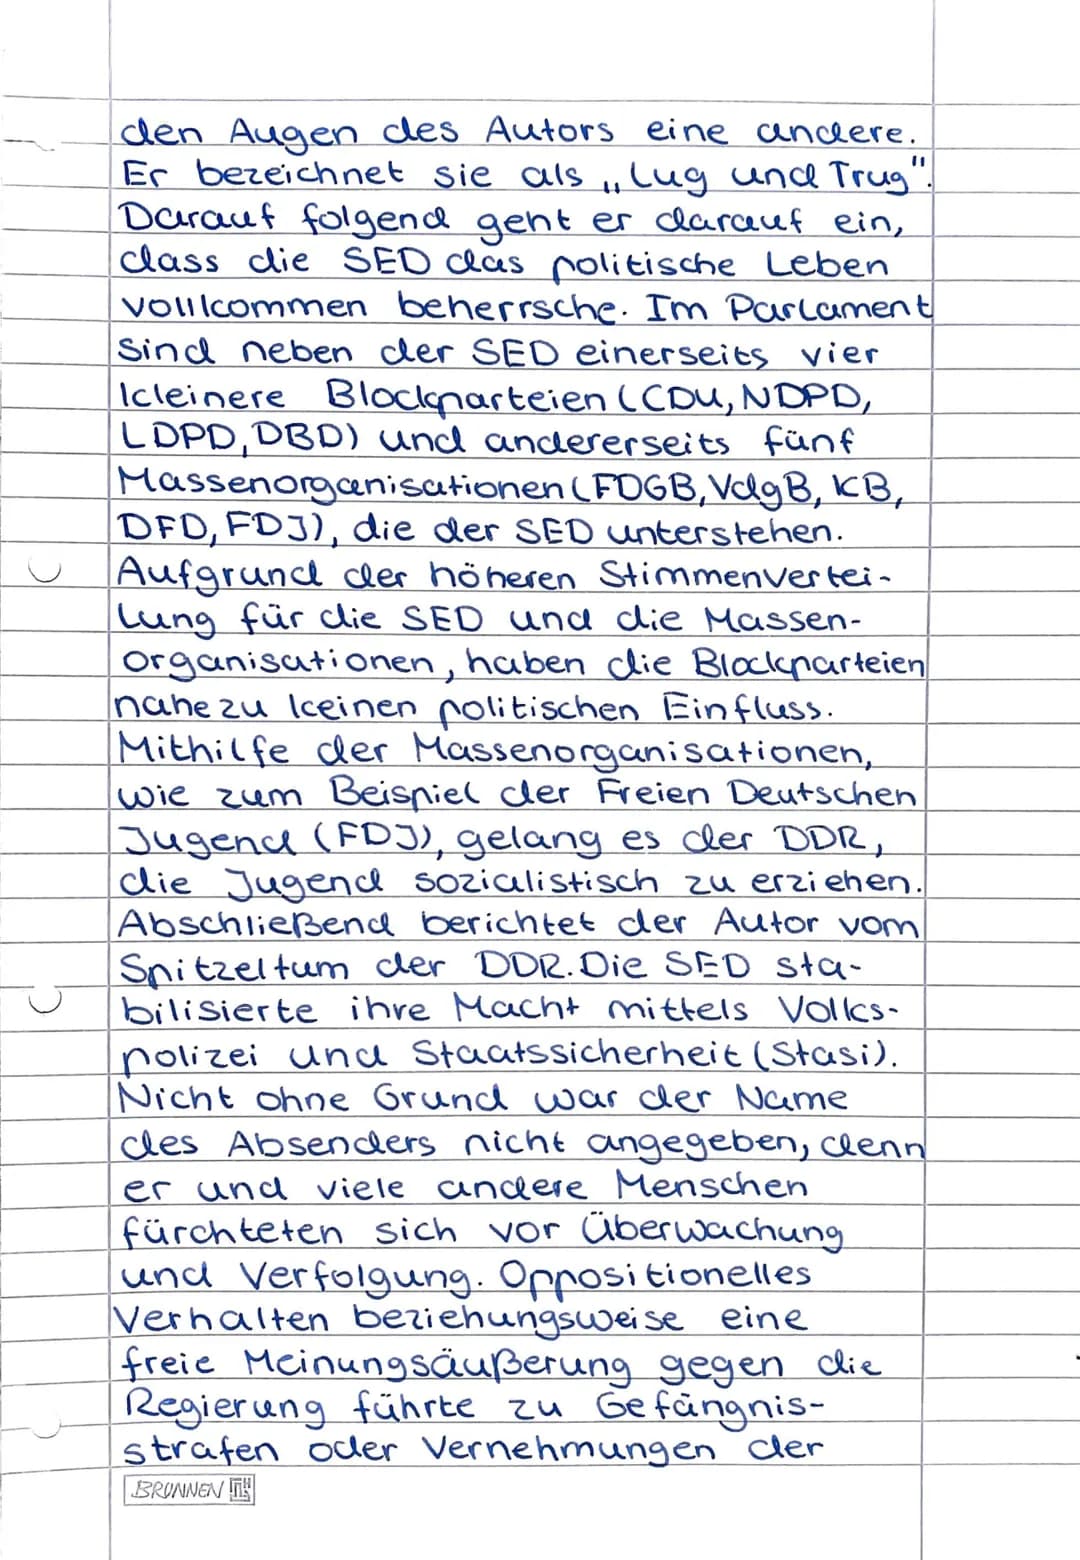 den Augen des Autors eine andere.
Er bezeichnet sie als „Lug und Trug".
Darauf folgend geht er darauf ein,
dass die SED das politische Leben
vollkommen beherrsche. Im Parlament
sind neben der SED einerseits vier
kleinere Blockparteien (CDU, NDPD,
LDPD, DBD) und andererseits fünf
Massenorganisationen (FDGB, VdgB, KB,
DFD, FDJ), die der SED unterstehen.
Aufgrund der höheren Stimmenvertei-
lung für die SED und die Massen-
organisationen, haben die Blockparteien
nahezu keinen politischen Einfluss.
Mithilfe der Massenorganisationen,
wie zum Beispiel der Freien Deutschen
Jugend (FDJ), gelang es der DDR,
die Jugend sozialistisch zu erziehen.
Abschließend berichtet der Autor vom
Spitzeltum der DDR. Die SED sta-
bilisierte ihre Macht mittels Volks-
polizei und Staatssicherheit (Stasi).
Nicht ohne Grund war der Name
des Absenders nicht angegeben, denn
er und viele andere Menschen
fürchteten sich vor Überwachung
und Verfolgung. Oppositionelles
Verhalten beziehungsweise eine
freie Meinungsäußerung gegen die
Regierung führte zu Gefängnis-
strafen oder Vernehmungen der
BRUNNEN